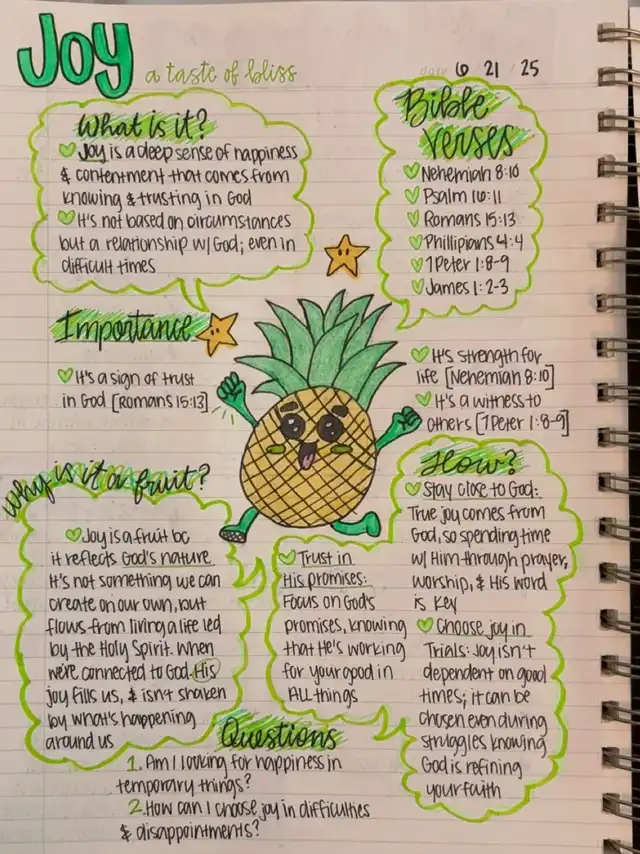 Joy
a taste of bliss
date 6 / 21 / 25
What is it?
Joy is a deep sense of happiness
& contentment that comes from
knowing & trusting in God
It's not based on circumstances
but a relationship w/ God; even in
difficult times
Bible
verses
Nehemiah 8:10
Psalm 16:11
Romans 15:13
Phillipians 4:4
1 Peter 1:8-9
James 1:2-3
Importance
It's a sign of trust
in God [Romans 15:13]
It's strength for
life [Nehemiah 8:10]
It's a witness to
others [1 Peter 1:8-9]
Why is it a fruit?
Joy is a fruit bc
it reflects God's nature
It's not something we can
create on our own, but
flows from living a life led
by the Holy Spirit. When
we're connected to God, His
joy fills us, & isn't shaken
by what's happening
around us
How?
Stay close to God:
True joy comes from
God, so spending time
w/ Him through prayer,
worship, & His word
is key
Choose joy in
Trials: Joy isn't
dependent on good
times; it can be
chosen even during
struggles knowing
God is refining
your faith
Trust in
His promises:
Focus on God's
promises, knowing
that He's working
for your good in
ALL things
Questions
1. Am I looking for happiness in
temporary things?
2. How can I choose joy in difficulties
& disappointments?